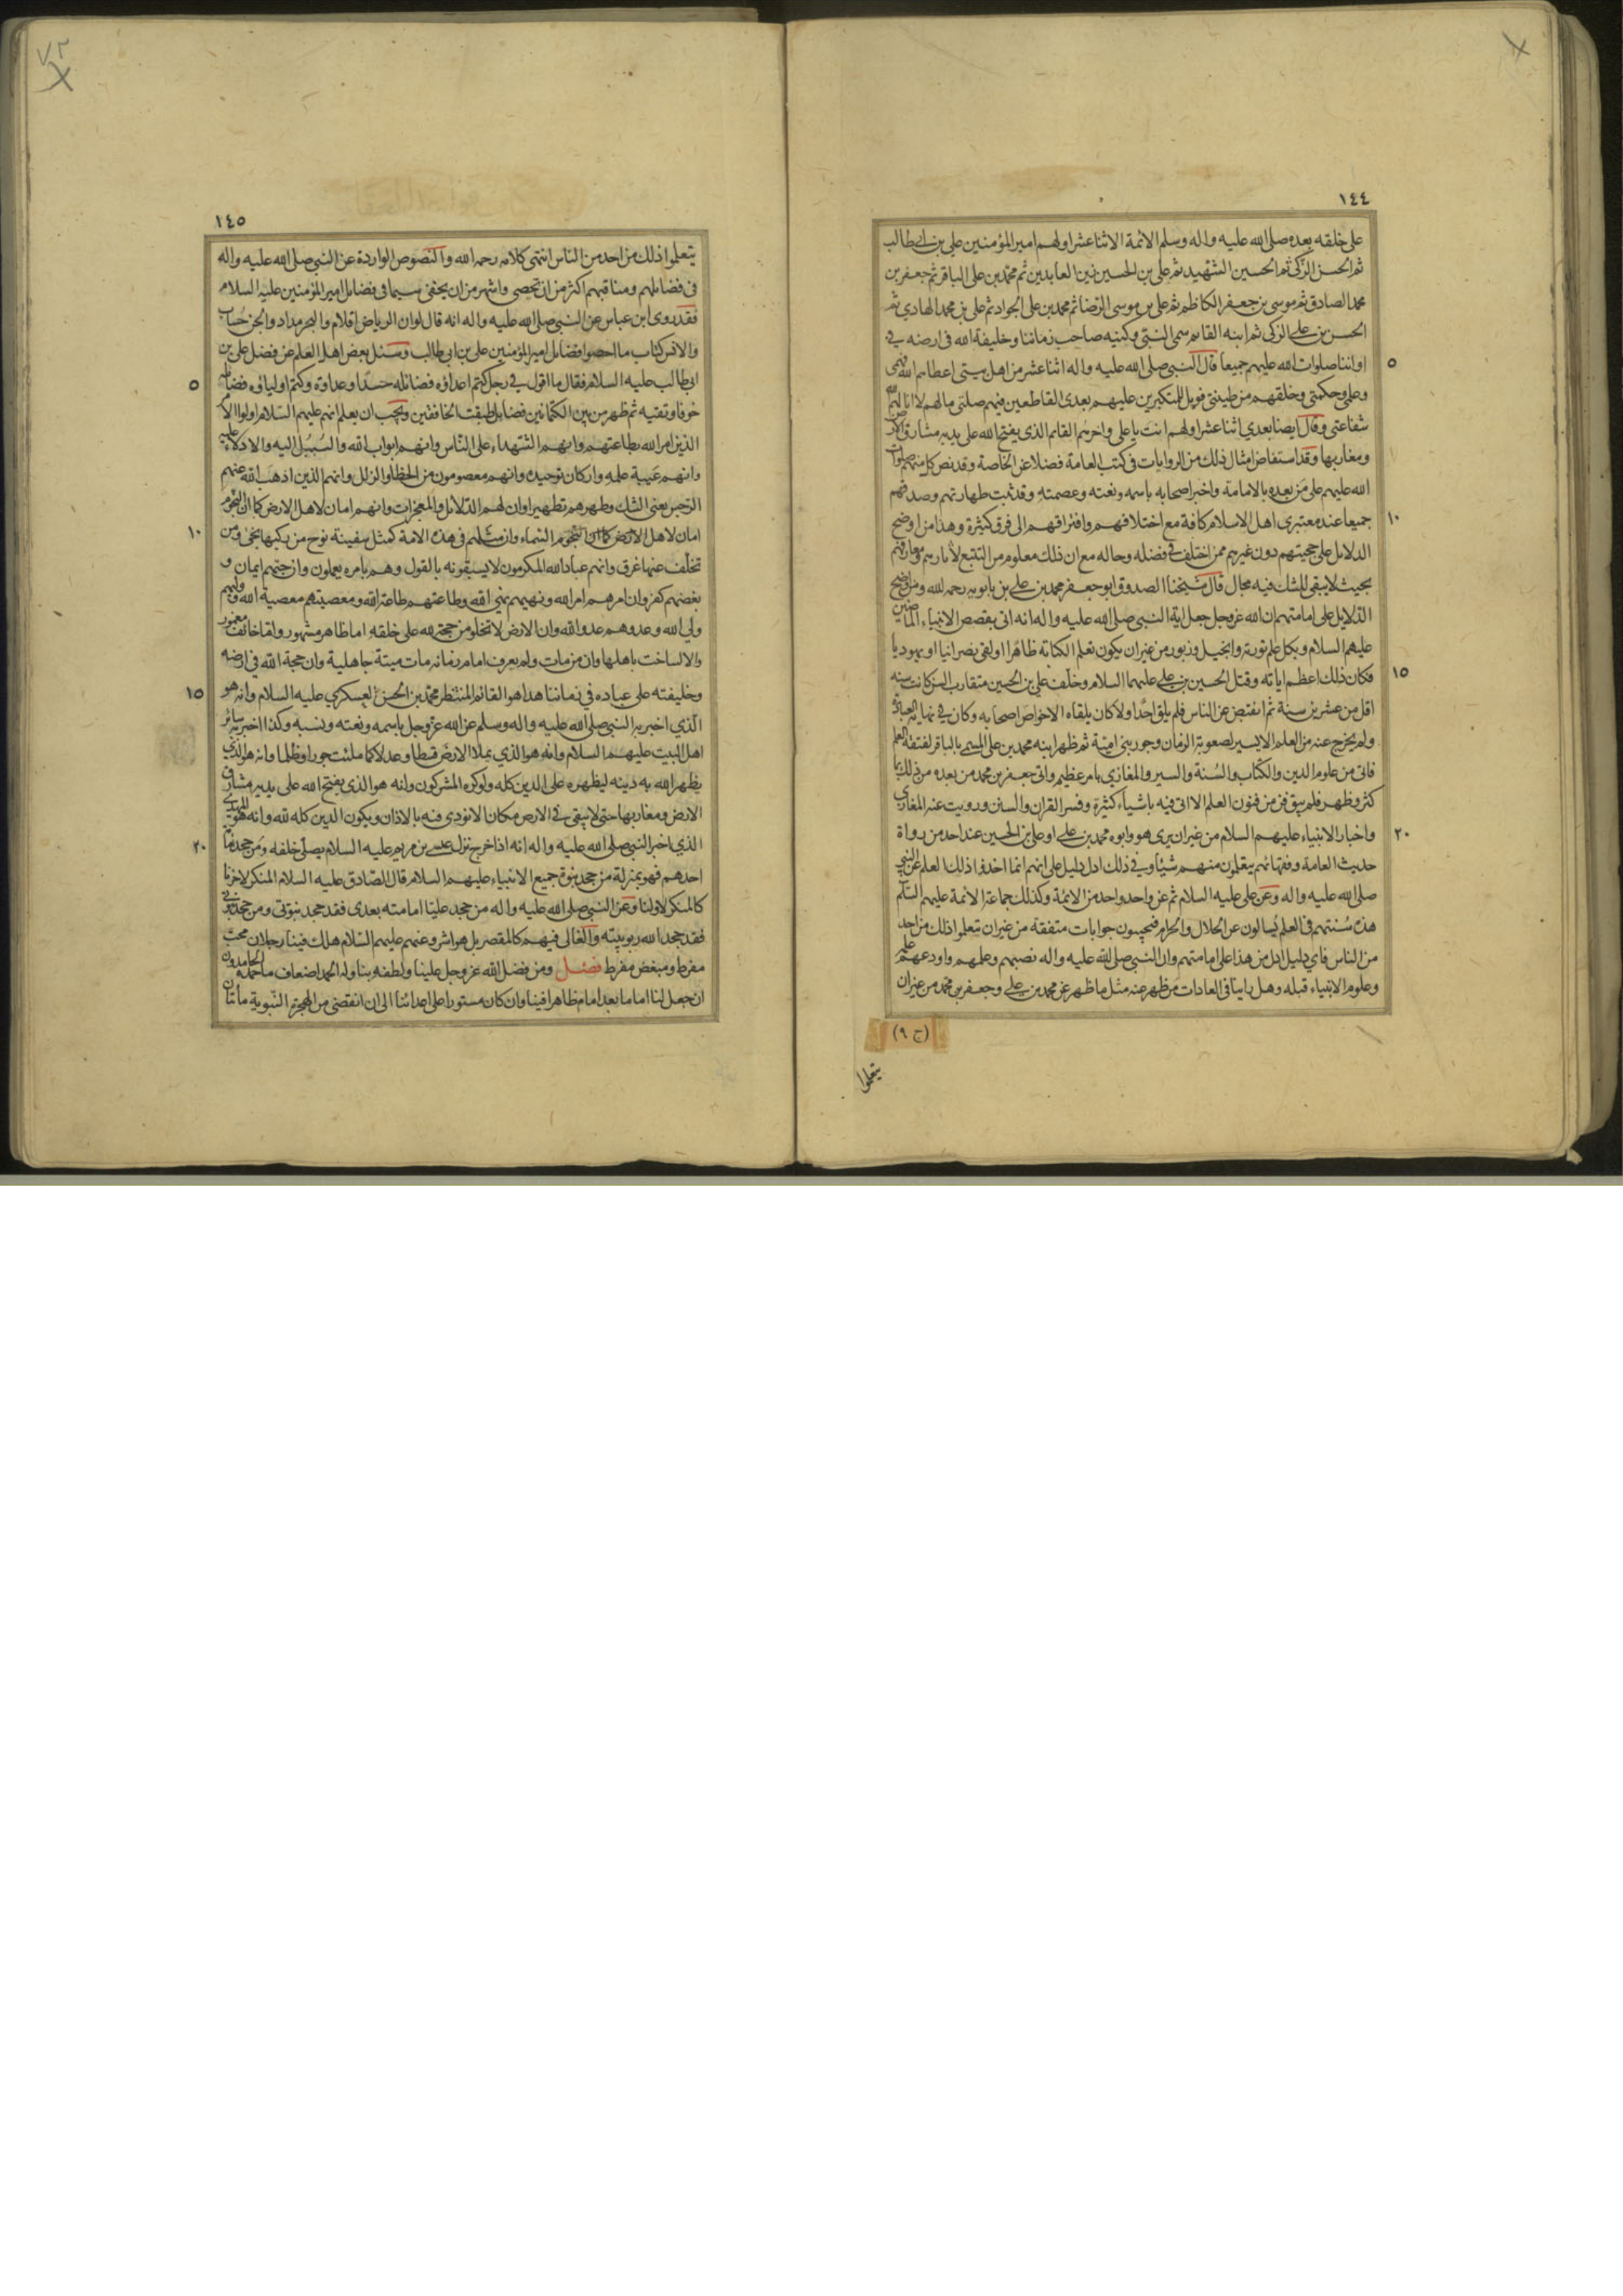 ١٤٤
على خلقه بعده صلى الله عليه واله وسلم الائمة الاثنا عشر اولهم امير المؤمنين علي بن ابى طالب
ثم الحسن الزكى ثم الحسين الشهيد ثم على بن الحسين زين العابدين ثم محمد بن على الباقر ثم جعفر بن
محمد الصادق ثم موسى بن جعفر الكاظم ثم على بن موسى الرضا ثم محمد بن على الجواد ثم على بن محمد الهادي ثم
الحسن بن على الزكى ثم ابنه القائم سمى النبي وكنيه صاحب زماننا وخليفة الله فى ارضه في
اواننا صلوات الله عليهم جميعا قال النبى صلى الله عليه واله اثنا عشر من اهل بيتى اعطاهم الله فهمى
٥
وعلمى وحكمتى وخلقهم من طينتى فويل للمتكبرين عليهم بعدى القاطعين فيهم صلتى مالهم لا انالهم الله
شفاعتى وقال ايضا بعدي اثنا عشر اولهم انت يا على واخرهم القائم الذى يفتح الله على يديه مشارق الارض
ومغاربها وقد استفاض امثال ذلك من الروايات فى كتب العامة فضلا عن الخاصة وقد نص كل منهم صلوات
الله عليهم على من بعده بالامامة واخبر اصحابه باسمه ونعته وعصمته وقد ثبت طهارتهم وصدقهم
جميعا عند معتبرى اهل الاسلام كافة مع اختلافهم وافتراقهم الى فرق كثيرة وهذا من اوضح
١٠
الدلايل على حجيتهم دون غيرهم ممن اختلف فى فضله وحاله مع ان ذلك معلوم من التتبع لأثارهم ومعارفهم
بحيث لا يبقى للشك فيه مجال قال شيخنا الصدوق ابو جعفر محمد بن على بن بابويه رحمه الله ومن اوضح
الدلايل على امامتهم ان الله عز وجل جعل اية النبى صلى الله عليه واله انه اتى بقصص الانبياء الماضين
عليهم السلام وبكل علم تورية وانجيل وزبور من غير ان يكون تعلم الكتابة ظاهرا او لقى نصرانيا او يهوديا
فكان ذلك اعظم اياته وقتل الحسين بن على عليهما السلام وخلف على بن الحسين متقارب السن كانت سنه
١٥
اقل من عشرين سنة ثم انقبض عن الناس فلم يلق احدا ولا كان يلقاه الا خواص اصحابه وكان في نهاية العبادة
ولم يخرج عنه من العلم الا يسير لصعوبة الزمان وجور بنى امية ثم ظهر ابنه محمد بن على المسمى بالباقر لفتقه العلم
فاتى من علوم الدين والكتاب والسنة والسير والمغازي بامر عظيم واتى جعفر بن محمد من بعده من ذلك بما
كثر وظهر فلم يبق فن من فنون العلم الا اتى فيه باشياء كثيرة وفسر القران والسنن ورويت عنه المغازي
واخبار الانبياء عليهم السلام من غير ان يرى هو وابوه محمد بن على او على بن الحسين عند احد من رواة
٢٠
حديث العامة وفقهائهم يتعلمون منهم شيئا وفي ذلك ادل دليل على انهم انما اخذوا ذلك العلم عن النبي
صلى الله عليه واله وعن على عليه السلام ثم عن واحد واحد من الائمة وكذلك جماعة الائمة عليهم السلام
هذه سنتهم فى العلم يسألون عن الحلال والحرام فيجيبون جوابات متفقة من غير ان يتعلموا ذلك من احد
من الناس فاي دليل ادل من هذا على امامتهم وان النبي صلى الله عليه واله نصبهم وعلمهم واودعهم علمه
وعلوم الانبياء قبله وهل راينا فى العادات من ظهر عنه مثل ما ظهر عن محمد بن على وجعفر بن محمد من غير ان
(ج ٩)
يتعلموا
٧٢
١٤٥
يتعلموا ذلك من احد من الناس انتهى كلامه رحمه الله والنصوص الواردة عن النبي صلى الله عليه واله
فى فضايلهم ومناقبهم اكثر من ان تحصى واشهر من ان يخفى سيما فى فضايل امير المؤمنين عليه السلام
فقد روى ابن عباس عن النبي صلى الله عليه واله انه قال لو ان الرياض اقلام والبحر مداد والجن حساب
والانس كتاب ما احصوا فضايل امير المؤمنين على بن ابى طالب وسئل بعض اهل العلم عن فضل على بن
ابى طالب عليه السلام فقال ما اقول فى رجل كتم اعداؤه فضائله حسدا وعداوة وكتم اولياؤه فضايله
٥
خوفا وتقية ثم ظهر من بين الكتمانين فضايل طبقت الخافقين ويجب ان يعلم انهم عليهم السلام اولوا الامر
الذين امر الله بطاعتهم وانهم الشهداء على الناس وانهم ابواب الله والسبيل اليه والادلاء عليه
وانهم عيبة علمه واركان توحيده وانهم معصومون من الخطا والزلل وانهم الذين اذهب الله عنهم
الرجس يعنى الشك وطهرهم تطهيرا وان لهم الدلائل والمعجزات وانهم امان لاهل الارض كما ان النجوم
امان لاهل الارض كما ان النجوم السماء وان مثلهم فى هذه الامة كمثل سفينة نوح من ركبها نجى ومن
١٠
تخلف عنها غرق وانهم عباد الله المكرمون لا يسبقونه بالقول وهم بامره يعملون وان حبهم ايمان و
بغضهم كفر وان امرهم امر الله ونهيهم نهي الله وطاعتهم طاعة الله ومعصيتهم معصية الله ووليهم
ولي الله وعدوهم عدو الله وان الارض لا تخلو من حجة لله على خلقه اما ظاهر مشهور واما خائف مغمور
والا لساخت باهلها وان من مات ولم يعرف امام زمانه مات ميتة جاهلية وان حجة الله فى ارضه
وخليفته على عباده في زماننا هذا هو القائم المنتظر محمد بن الحسن العسكري عليه السلام وانه هو
١٥
الذي اخبر به النبي صلى الله عليه واله وسلم عن الله عز وجل باسمه ونعته ونسبه وكذا اخبر به سائر
اهل البيت عليهم السلام وانه هو الذي يملا الارض قسطا وعدلا كما ملئت جورا وظلما وانه هو الذي
يظهر الله به دينه ليظهره على الدين كله ولو كره المشركون وانه هو الذى يفتح الله على يديه مشارق
الارض ومغاربها حتى لا يبقى فى الارض مكان الا نودي فيه بالاذان ويكون الدين كله لله وانه هو المهدي
الذي اخبر النبي صلى الله عليه واله انه اذا خرج نزل عيسى بن مريم عليه السلام يصلي خلفه ومن جحد
٢٠
احدهم فهو بمنزلة من جحد نبوة جميع الانبياء عليهم السلام قال الصادق عليه السلام المنكر لاخرنا
كالمنكر لاولنا وعن النبي صلى الله عليه واله من جحد عليا امامته بعدى فقد جحد نبوتى ومن جحد نبوتي
فقد جحد الله ربوبيته والغالى فيهم كالمقصر بل هو اشر وعنهم عليهم السلام هلك فينا رجلان محب
مفرط ومبغض مفرط فصل ومن فضل الله عز وجل علينا ولطفه بنا وله الحمد اضعاف ما حمده الحامدون
ان جعل لنا اماما بعد امام ظاهرا فينا وان كان مستورا على اعدائنا الى ان انقضى من الهجرة النبوية مأتان